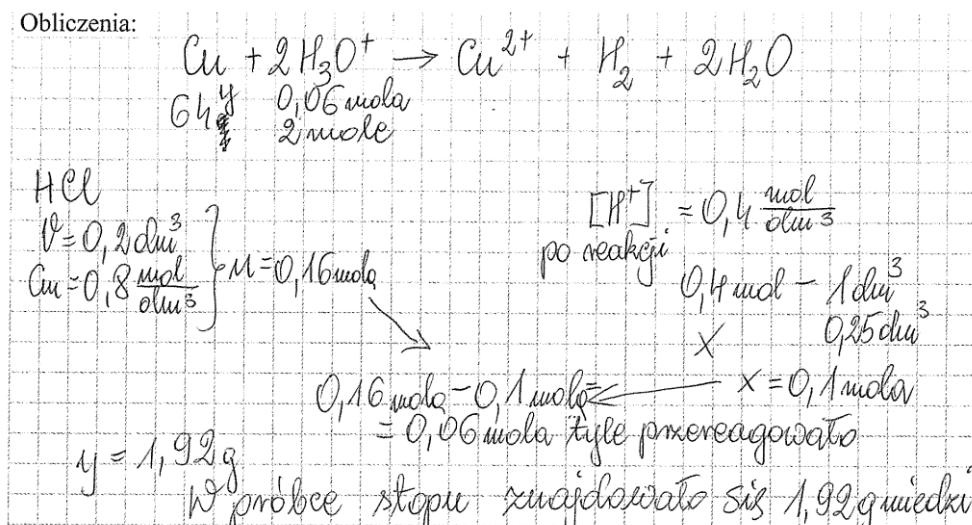 Obliczenia:
Cu + 2H₃O⁺ → Cu²⁺ + H₂ + 2H₂O
64g y 0,06 mola
2 mole
HCl
V = 0,2 dm³
Cm = 0,8 mol/dm³
n = 0,16 mola
[H⁺] = 0,4 mol/dm³
po reakcji
0,4 mol – 1 dm³
x 0,25 dm³
x = 0,1 mola
0,16 mola – 0,1 mola =
= 0,06 mola tyle przereagowało
y = 1,92 g
W próbce stopu znajdowało się 1,92 g miedzi